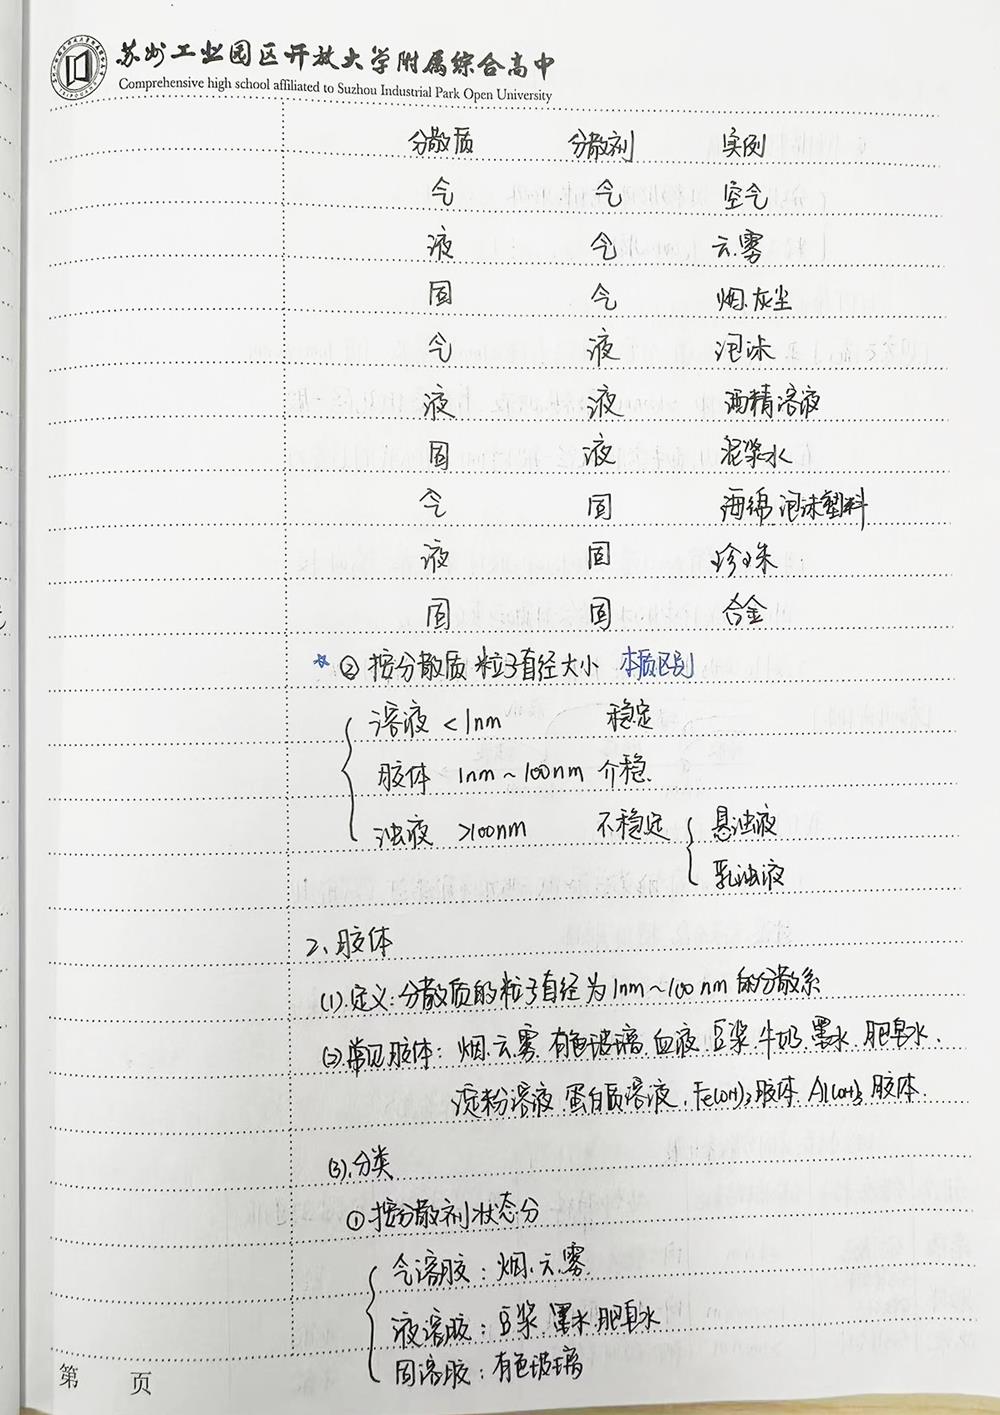 苏州工业园区开放大学附属综合高中
Comprehensive high school affiliated to Suzhou Industrial Park Open University
分散质 分散剂 实例
气 气 空气
液 气 云.雾
固 气 烟.灰尘
气 液 泡沫
液 液 酒精溶液
固 液 泥浆水
气 固 海绵 泡沫塑料
液 固 珍珠
固 固 合金
☆ ② 按分散质粒子直径大小 本质区别
溶液 <1nm 稳定
胶体 1nm~100nm 介稳.
浊液 >100nm 不稳定 悬浊液
乳浊液
2、胶体
(1).定义:分散质的粒子直径为1nm~100nm的分散系
(2).常见胶体: 烟.云.雾.有色玻璃.血液.豆浆.牛奶.墨水.肥皂水.
淀粉溶液.蛋白质溶液.Fe(OH)3胶体.Al(OH)3胶体.
(3).分类
①按分散剂状态分
气溶胶:烟.云.雾.
液溶胶:豆浆.墨水.肥皂水
固溶胶:有色玻璃
第 页